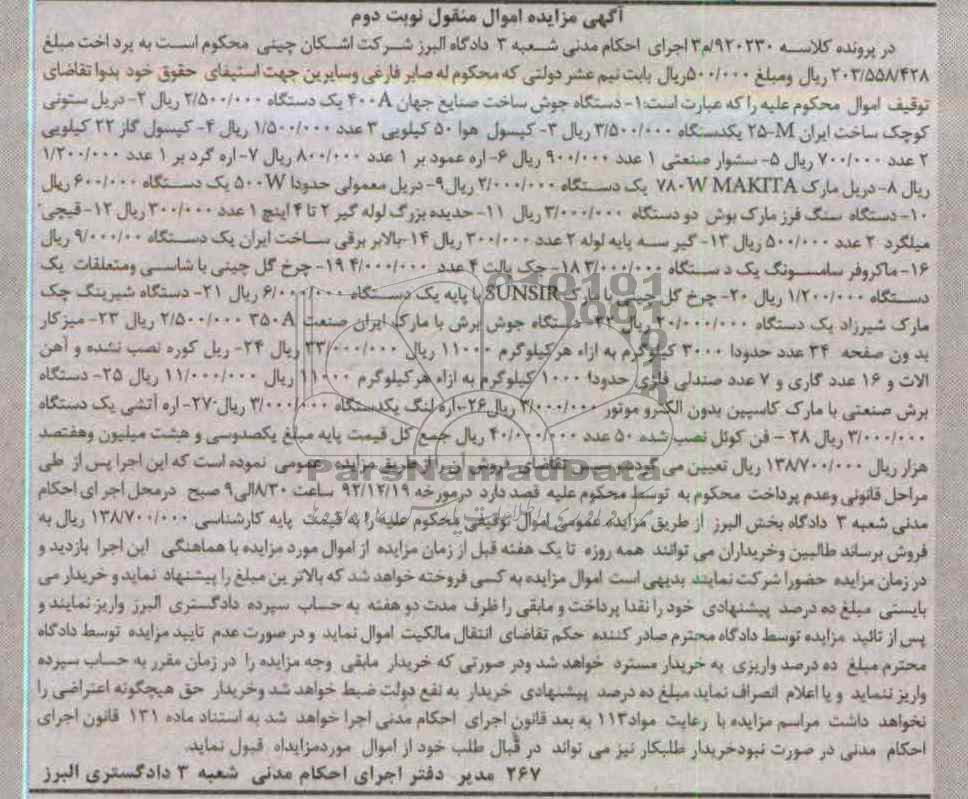 آگهی مزایده اموال منقول نوبت دوم
در پرونده کلاسه ۹۲۰۲۳۰/م۳ اجرای احکام مدنی شعبه ۳ دادگاه البرز شرکت اشکان چینی محکوم است به پرداخت مبلغ
۲۰۳/۵۵۸/۴۲۸ ریال ومبلغ ۵۰۰/۰۰۰ریال بابت نیم عشر دولتی که محکوم له صابر فارغی وسایرین جهت استیفای حقوق خود بدوا تقاضای
توقیف اموال محکوم علیه را که عبارت است:۱- دستگاه جوش ساخت صنایع جهان ۴۰۰A یک دستگاه ۲/۵۰۰/۰۰۰ ریال ۲-دریل ستونی
کوچک ساخت ایران ۲۵-M یکدستگاه ۳/۵۰۰/۰۰۰ ریال ۳- کپسول هوا ۵۰ کیلویی ۳ عدد ۱/۵۰۰/۰۰۰ ریال ۴- کپسول گاز ۲۲ کیلویی
۲ عدد ۷۰۰/۰۰۰ ریال ۵- سشوار صنعتی ۱ عدد ۹۰۰/۰۰۰ ریال ۶- اره عمود بر ۱ عدد ۸۰۰/۰۰۰ ریال ۷- اره گرد بر ۱ عدد ۱/۲۰۰/۰۰۰
ریال ۸-دریل مارک ۷۸۰W MAKITA یک دستگاه ۲/۰۰۰/۰۰۰ ریال۹- دریل معمولی حدودا ۵۰۰W یک دستگاه ۶۰۰/۰۰۰ ریال
۱۰-دستگاه سنگ فرز مارک بوش دو دستگاه ۳/۰۰۰/۰۰۰ ریال ۱۱- حدیده بزرگ لوله گیر ۲ تا ۴ اینچ ۱ عدد ۳۰۰/۰۰۰ ریال ۱۲-قیچی
میلگرد ۲ عدد ۵۰۰/۰۰۰ ریال ۱۳- گیر سه پایه لوله ۲ عدد ۳۰۰/۰۰۰ ریال ۱۴-بالابر برقی ساخت ایران یک دستگاه ۹/۰۰۰/۰۰ ریال
۱۶-ماکروفر سامسونگ یک دستگاه ۳/۰۰۰/۰۰۰ ۱۸- جک پالت ۴ عدد ۴/۰۰۰/۰۰۰ ۱۹- چرخ گل چینی با شاسی ومتعلقات یک
دستگاه ۱/۲۰۰/۰۰۰ ریال ۲۰- چرخ گل چینی با مارک SUNSIR با پایه یک دستگاه ۶/۰۰۰/۰۰۰ ریال ۲۱- دستگاه شیرینگ چک
مارک شیرزاد یک دستگاه ۲۰/۰۰۰/۰۰۰ ریال ۲۲- دستگاه جوش برش با مارک ایران صنعت ۳۵۰A ۲/۵۰۰/۰۰۰ ریال ۲۳- میز کار
بد ون صفحه ۳۴ عدد حدودا ۳۰۰۰ کیلوگرم به ازاء هرکیلوگرم ۱۱۰۰۰ ریال ۳۳/۰۰۰/۰۰۰ ریال ۲۴- ریل کوره نصب نشده و آهن
الات و ۱۶ عدد گاری و ۷ عدد صندلی فلزی حدودا ۱۰۰۰ کیلوگرم به ازاء هرکیلوگرم ۱۱۰۰۰ ریال ۱۱/۰۰۰/۰۰۰ ریال ۲۵- دستگاه
برش صنعتی با مارک کاسپین بدون الکترو موتور ۳/۰۰۰/۰۰۰ ریال۲۶-اره لنگ یکدستگاه ۳/۰۰۰/۰۰۰ ریال-۲۷- اره آتشی یک دستگاه
۳/۰۰۰/۰۰۰ ریال ۲۸ - فن کوئل نصب شده ۵۰ عدد ۴۰/۰۰۰/۰۰۰ ریال جمع کل قیمت پایه مبلغ یکصدوسی و هشت میلیون وهفتصد
هزار ریال ۱۳۸/۷۰۰/۰۰۰ ریال تعیین می گردد تقاضای فروش آن را از طریق مزایده عمومی نموده است که این اجرا پس از طی
مراحل قانونی وعدم پرداخت محکوم به توسط محکوم علیه قصد دارد درمورخه ۹۲/۱۲/۱۹ ساعت ۸/۳۰الی۹ صبح درمحل اجرای احکام
مدنی شعبه ۳ دادگاه بخش البرز از طریق مزایده عمومی اموال توقیفی محکوم علیه را به قیمت پایه کارشناسی ۱۳۸/۷۰۰/۰۰۰ ریال به
فروش برساند طالبین وخریداران می توانند همه روزه تا یک هفته قبل از زمان مزایده از اموال مورد مزایده با هماهنگی این اجرا بازدید و
در زمان مزایده حضورا شرکت نمایند بدیهی است اموال مزایده به کسی فروخته خواهد شد که بالاترین مبلغ را پیشنهاد نماید و خریدار می
بایستی مبلغ ده درصد پیشنهادی خود را نقدا پرداخت و مابقی را ظرف مدت دو هفته به حساب سپرده دادگستری البرز واریز نمایند و
پس از تائید مزایده توسط دادگاه محترم صادر کننده حکم تقاضای انتقال مالکیت اموال نماید و در صورت عدم تایید مزایده توسط دادگاه
محترم مبلغ ده درصد واریزی به خریدار مسترد خواهد شد ودر صورتی که خریدار مابقی وجه مزایده را در زمان مقرر به حساب سپرده
واریز ننماید و یا اعلام انصراف نماید مبلغ ده درصد پیشنهادی خریدار به نفع دولت ضبط خواهد شد وخریدار حق هیچگونه اعتراضی را
نخواهد داشت مراسم مزایده با رعایت مواد۱۱۳ به بعد قانون اجرای احکام مدنی اجرا خواهد شد به استناد ماده ۱۳۱ قانون اجرای
احکام مدنی در صورت نبودخریدار طلبکار نیز می تواند در قبال طلب خود از اموال موردمزایداه قبول نماید.
۲۶۷ مدیر دفتر اجرای احکام مدنی شعبه ۳ دادگستری البرز
ParsNamadData